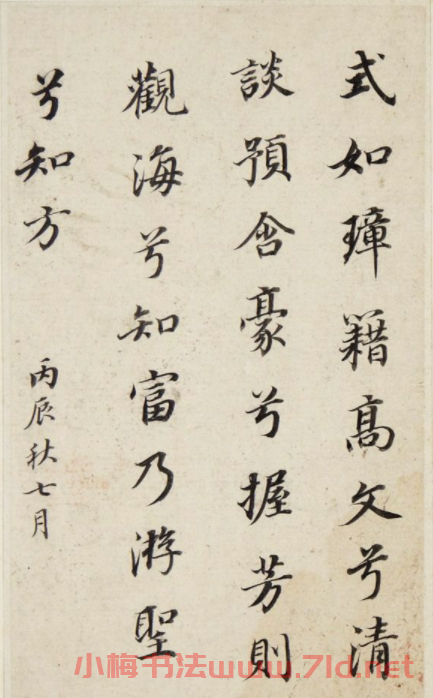 式如璋籍高文兮清
談預含豪兮握芳則
觀海兮知富乃游聖
兮知方
丙辰秋七月
小梅书法www.7ld.net